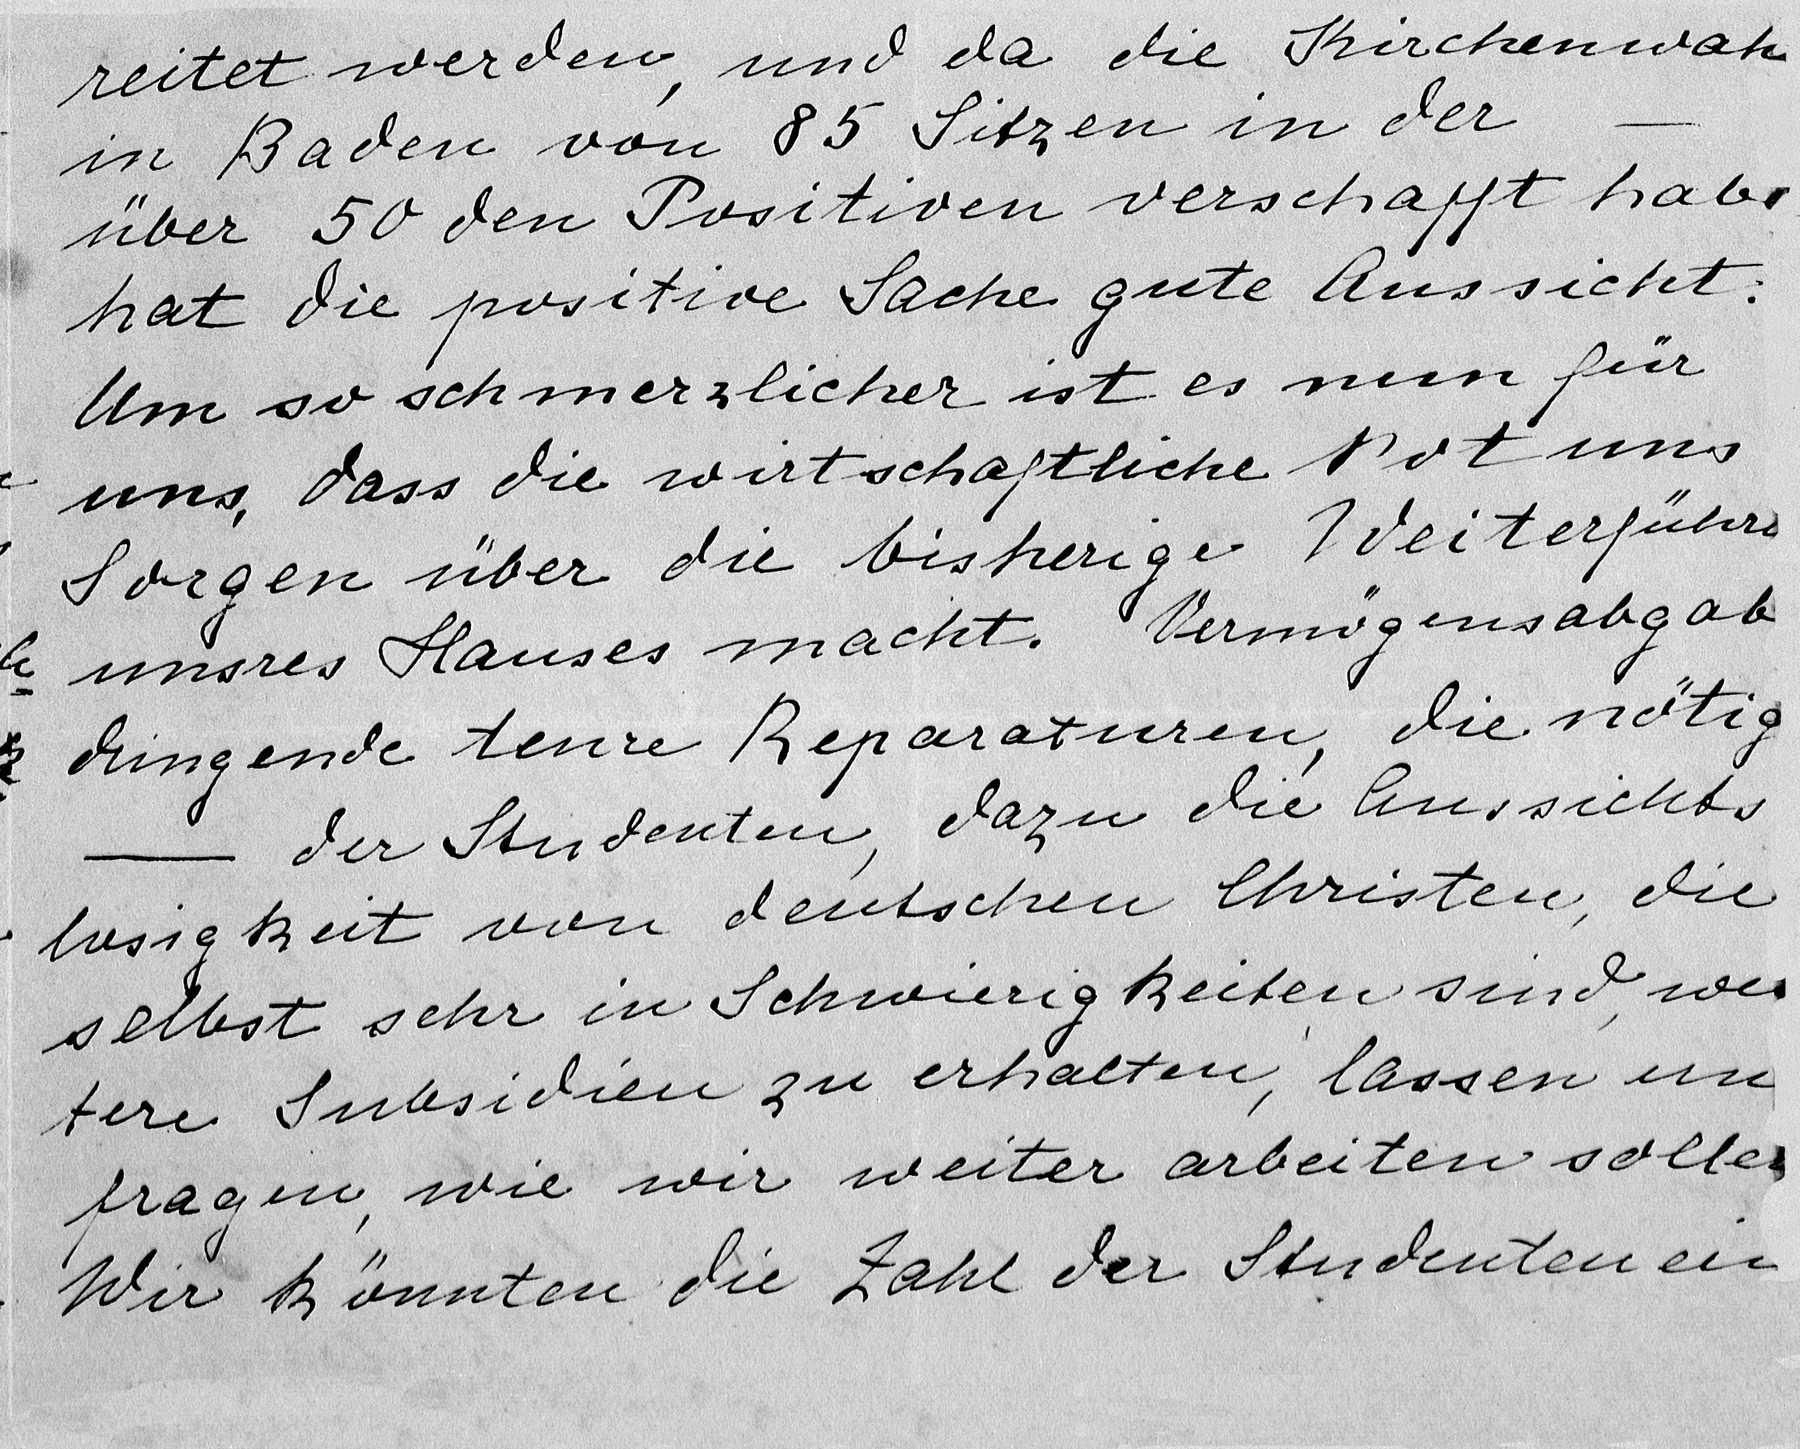 reitet werden, und da die Kirchenwah
in Baden von 85 Sitzen in der —
über 50 den Positiven verschafft habe
hat die positive Sache gute Aussicht.
Um so schmerzlicher ist es nun für
uns, dass die wirtschaftliche Not uns
Sorgen über die bisherige Weiterführu
unsres Hauses macht. Vermögensabgab
dringende teure Reparaturen, die nötig
— der Studenten, dazu die Aussichts
losigkeit von deutschen Christen, die
selbst sehr in Schwierigkeiten sind, wei
tere Subsidien zu erhalten, lassen un
fragen, wie wir weiter arbeiten sollen
Wir könnten die Zahl der Studenten ein